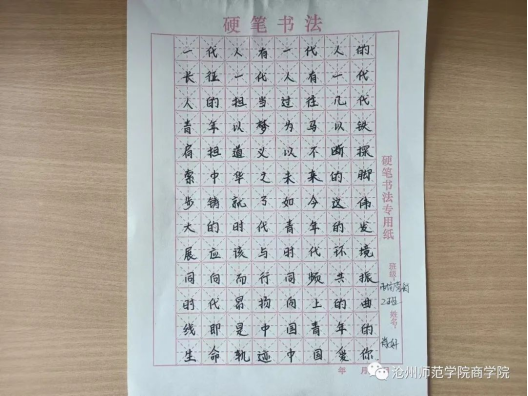 硬笔书法
一代人有一代人的
长征一代人有一代
人的担当过往几代
青年以梦为马以铁
肩担道义以不断的探
索中华之未来的脚
步铸就了如今这伟
大的时代青年的发
展应该与时代环境
同向而行同频共振
时代昂扬向上的曲
线即是中国青年的
生命轨迹中国爱你
硬笔书法专用纸
班级
2班
姓名
年 月
沧州师范学院商学院